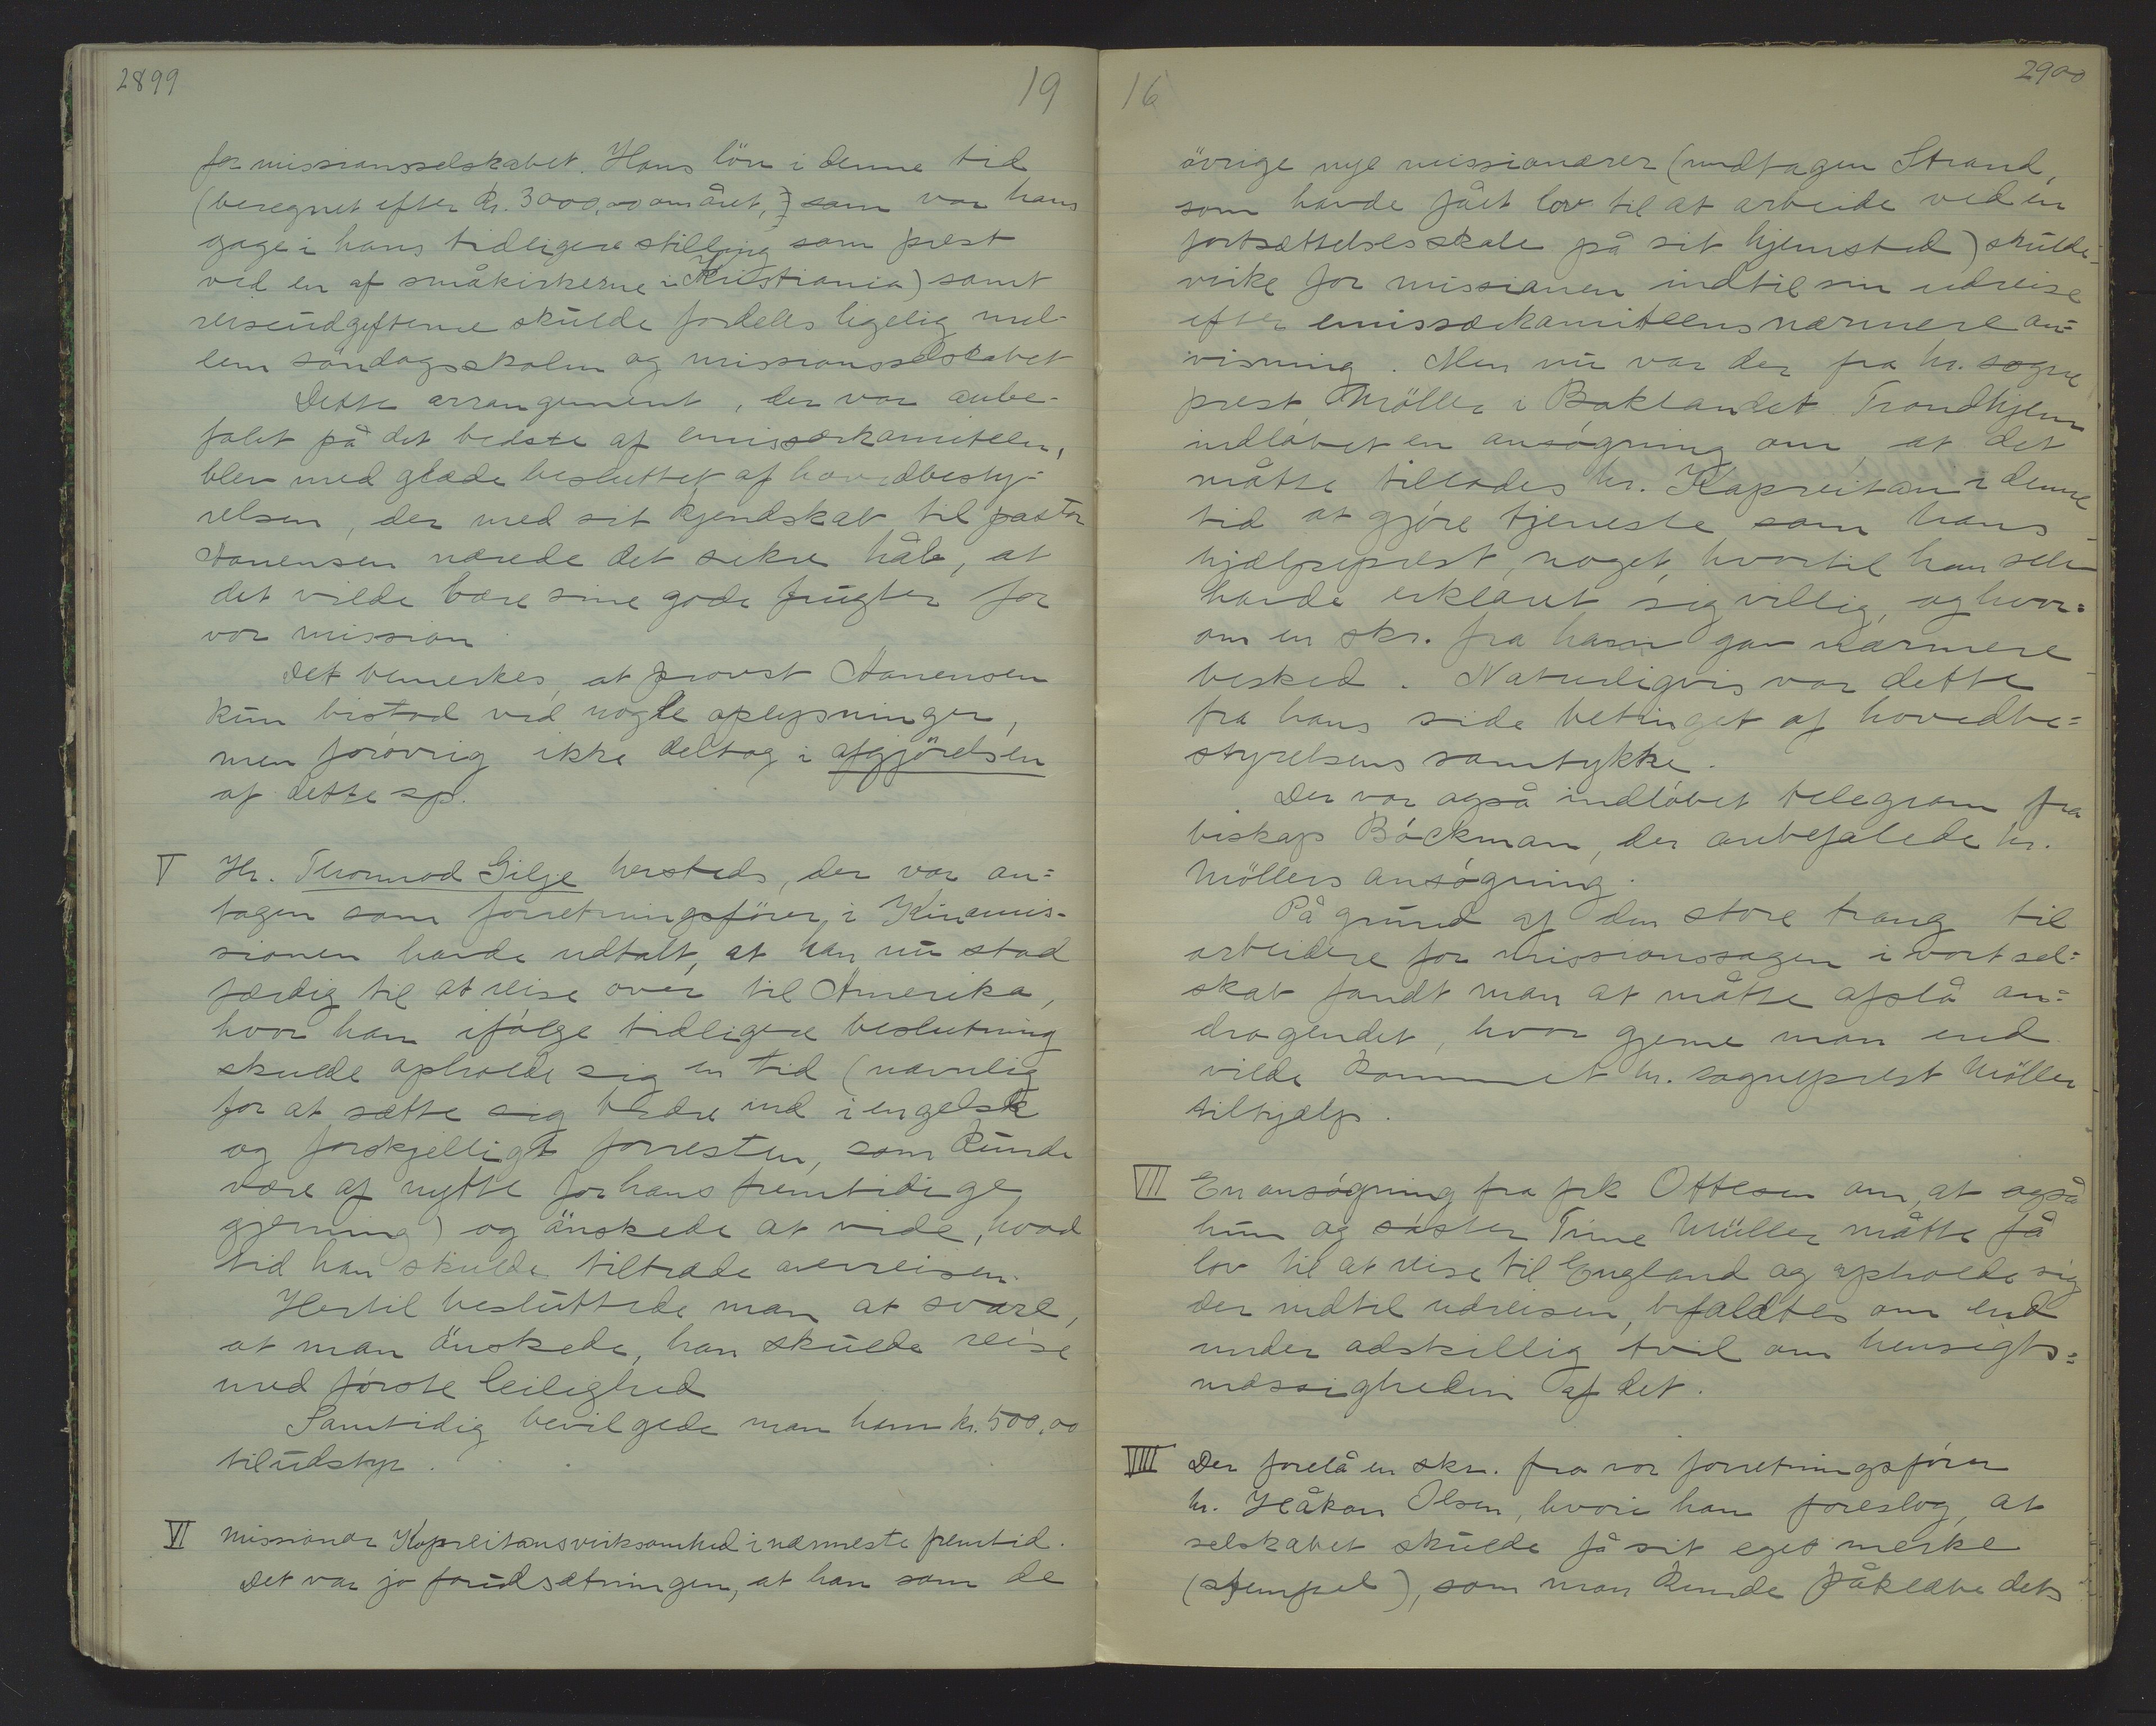 2899
19
for missionsselskabet. Hans lön i denne tid
(beregnet efter kr. 3000,00 om året, som var hans
gage i hans tidligere stilling som prest
ved en af småkirkerne i Kristiania) samt
reiseudgifterne skulde fordeles ligelig mel-
lem söndagsskolen og missionsselskabet
Dette arrangement, der var anbe-
falet på det bedste af emissærkomiteen,
blev med glæde besluttet af hovedbesty-
relsen, der med sit kjendskab til pastor
Aanensen nærede det sikre håb, at
det vilde bære sine gode frugter for
vor mission
Det bemerkes, at provst Aanensen
kun bistod ved nogle oplysninger,
men forövrig ikke deltog i afgjörelsen
af dette sp.
V Hr. Thormod Gilje hersteds, der var an=
tagen som forretningsförer i Kinamis-
sionen havde udtalt, at han nu stod
færdig til at reise over til Amerika,
hvor han ifölge tidligere beslutning
skulde opholde sig en tid (navnlig
for at sætte sig bedre ind i engelsk
og forskjelligt forresten, som kunde
være af nytte for hans fremtidige
gjerning) og önskede at vide, hvad
tid han skulde tiltræde overreisen.
Hertil besluttede man at svare,
at man önskede, han skulde reise
med förste leilighed
Samtidig bevilgede man ham kr. 500,00
til udstyr.
VI Missionær Kapreitans virksomhed i nærmeste fremtid.
Det var jo forudsætningen, at han som de
16
2900
övrige nye missionærer (undtagen Strand,
som havde fået lov til at arbeide ved en
fortsættelsesskole på sit hjemsted) skulde
virke for missionen indtil sin udreise
efter emissærkomiteens nærmere an=
visning. Men nu var der fra hr. sogne
prest Möller i Baklandet Trondhjem
indlöbet en ansögning om, at det
måtte tillades hr. Kapreitan i denne
tid at gjöre tjeneste som hans
hjælpeprest, noget, hvortil han selv
havde erklæret sig villig, og hvor=
om en skr. fra ham gav nærmere
besked. Naturligvis var dette
fra hans side betinget af hovedbe=
styrelsens samtykke.
Der var også indlöbet telegram fra
biskop Böckman, der anbefalede hr.
Möllers ansögning.
På grund af den store trang til
arbeidere for missionssagen i vort sel=
skab fandt man at måtte afslå an=
dragendet, hvor gjerne man end
vilde kommet hr. sogneprest Möller
tilhjælp.
VII En ansögning fra frk Ottesen om, at også
hun og söster Trine Müller måtte få
lov til at reise til England og opholde sig
der indtil udreisen, bifaldtes om end
under adskillig tvil om hensigts=
mæssigheden af det.
VIII Der forelå en skr. fra vor forretningsförer
hr. Håkon Olsen, hvori han foreslog, at
selskabet skulde få sit eget merke
(stempel), som man kunde påklæbe dets